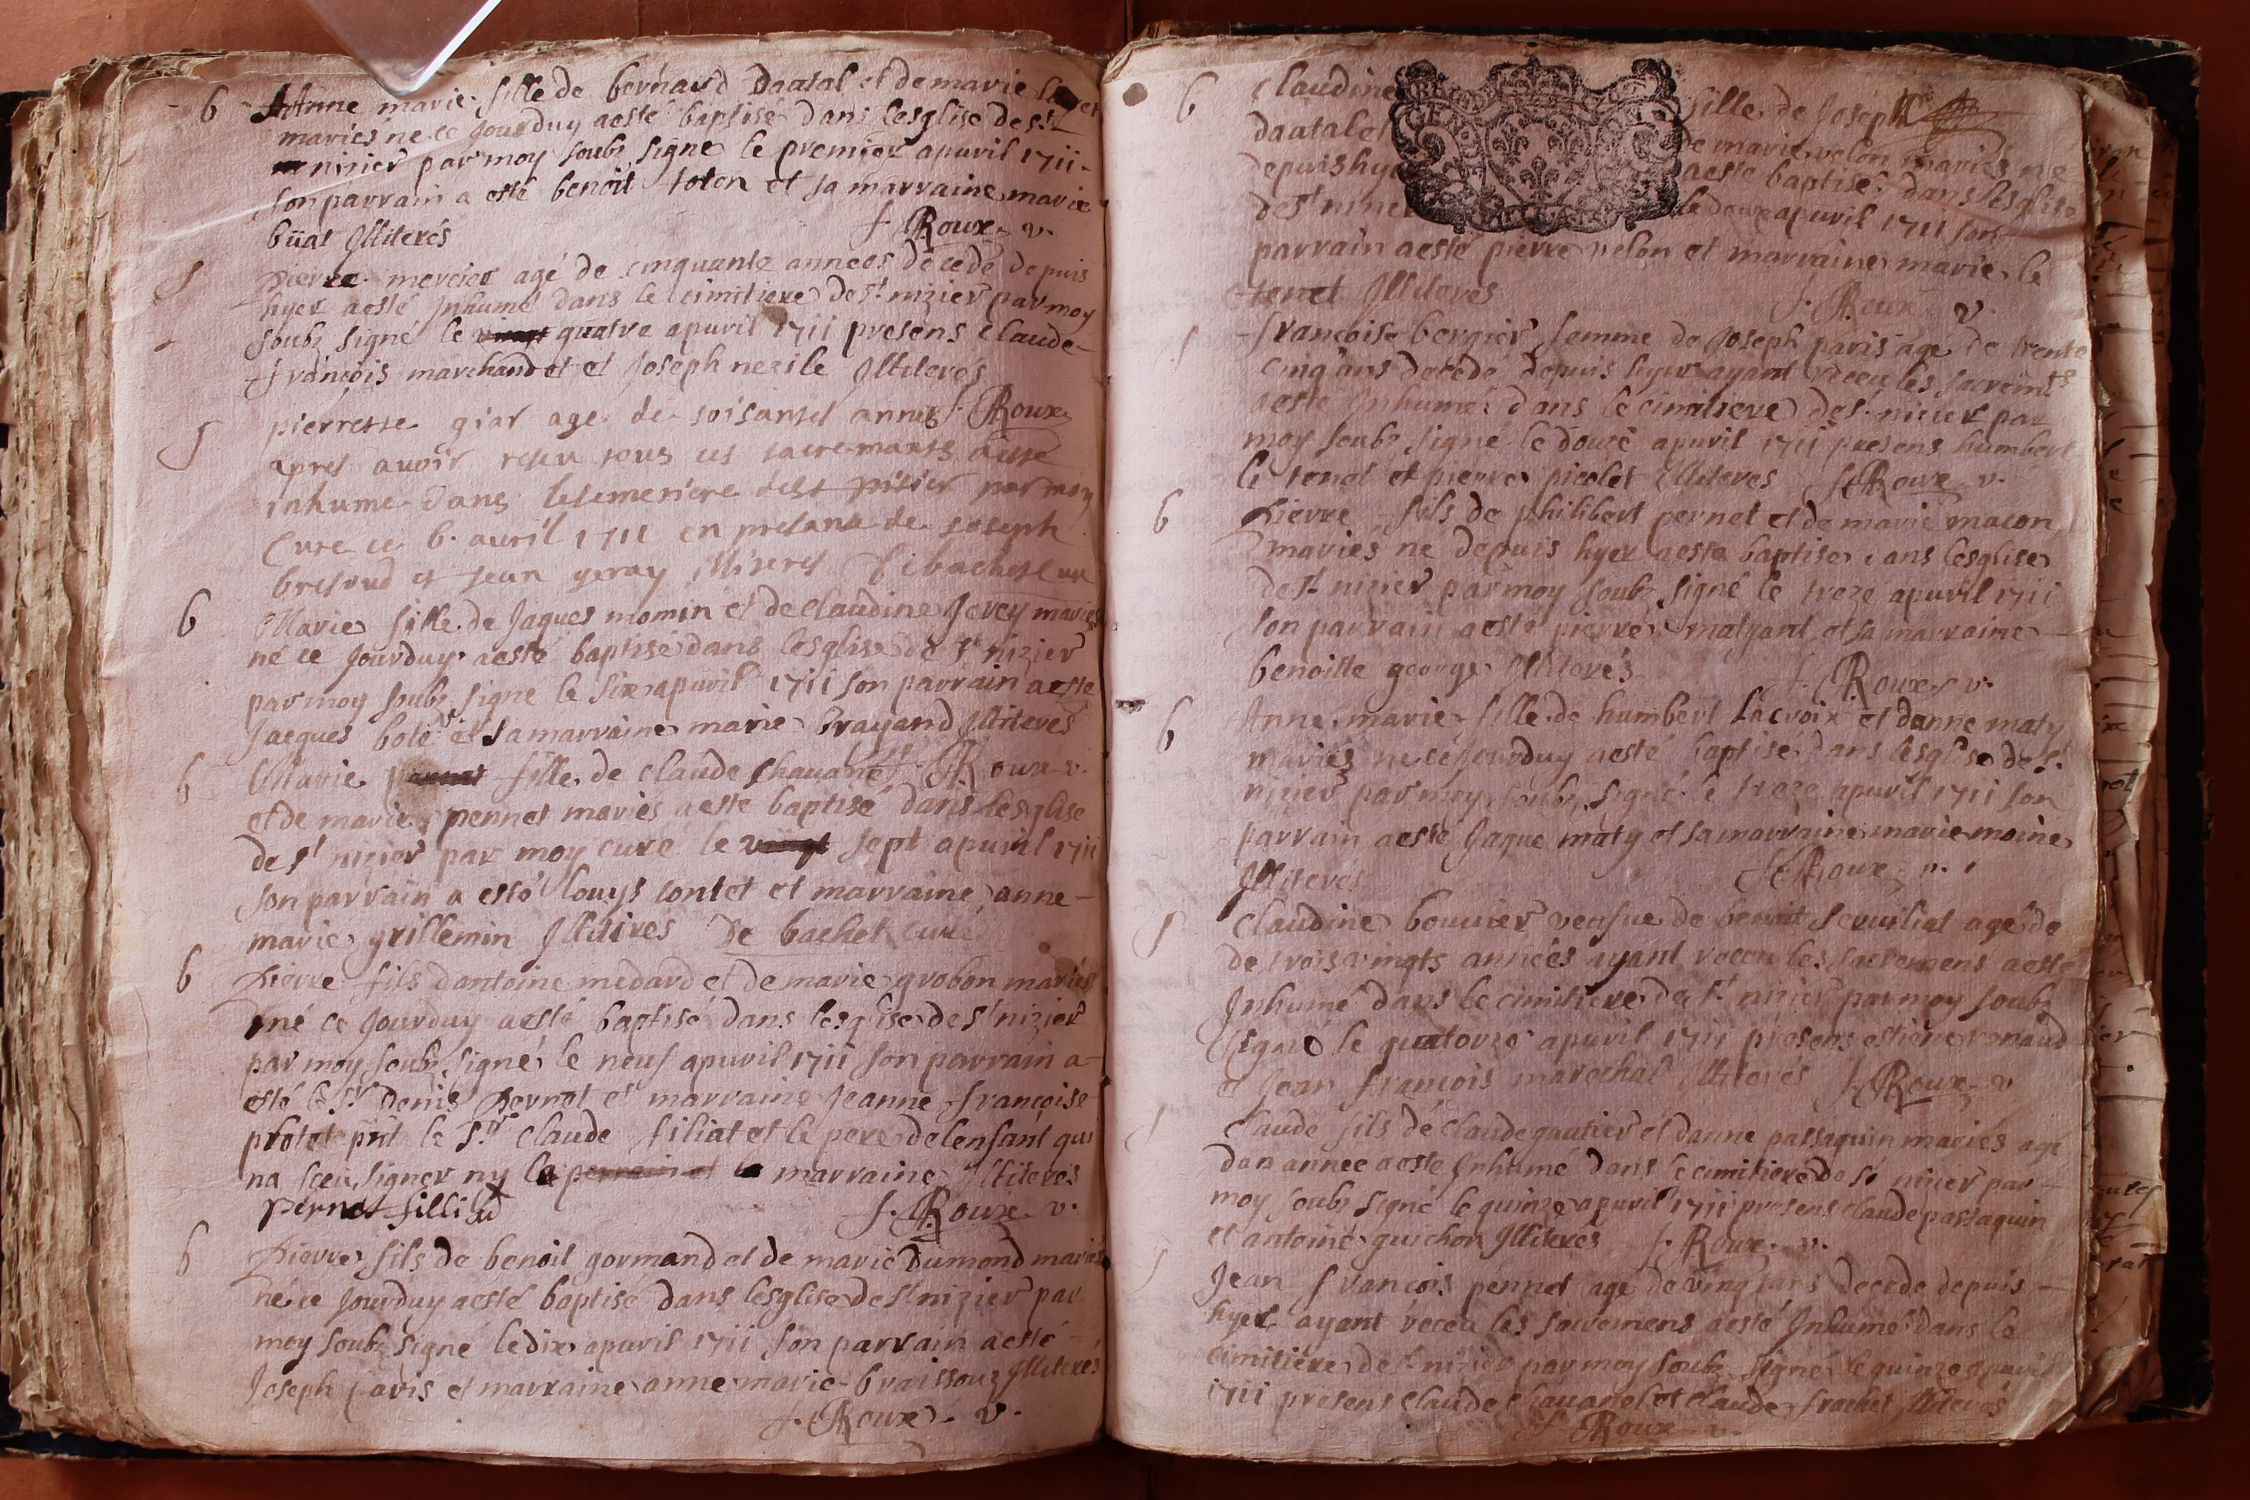 6 Anne marie fille de bernard Daatal et de marie
mariés ne ce Jourduy aesté baptisé dans lesglise de st
nizier par moy soubz signé le premier apuril 1711 -
son parrain a esté benoit toton et sa marraine marie
büat Illiterés f. Roux v.
S pierre mercier agé de cinquante années décédé depuis
hyer aesté Inhumé dans le cimitiere de st nizier par moy
soubz signé le quatre apuril 1711 presens Claude-
françois marchand et et Joseph nezile Illiterés
f. Roux
S pierrette giar age de soisante annes
apres auoir reseu tous ses sacremants a esté
inhume dans le semetiere de st nisier par moy
Cure ce 6. auril 1711 en presance de Joseph
bresoud et Jean geray Illiteres
6 Marie fille de Jaques momin et de claudine Jerey mariés
né ce Jourduy aesté baptisé dans lesglise de st nizier
par moy soubz signé le six apuril 1711 son parrain a esté
Jacques bolé et sa marraine marie Trayand Illiterés
f. Roux v.
6 Marie fille de claude chauanel
et de marie pennet mariés aesté baptisé dans lesglise
de st nizier par moy curé le sept apuril 1711
son parrain a esté louys contet et marraine anne-
marie grillemin Illitires De bachet curé
6 Pierre fils dantoine medard et de marie grobon mariés
né ce Jourduy aesté baptisé dans lesglise de st nizier
par moy soubz signé le neuf apuril 1711 son parrain a-
esté le sr denis Pernot et marraine Jeanne françoise
protet pnt le sr Claude filiat et le pere de lenfant qui
na sceu signer ny la marraine Illiterés
Pernot filliat f. Roux v.
6 Pierre fils de benoit gormand et de marie Dumond mariés
né ce Jourduy aesté baptisé dans lesglise de st nizier par
moy soubz signé le dix apuril 1711 son parrain aesté
Joseph paris et marraine anne marie braissouz Illiterés
f. Roux v.
6 Claudine fille de Joseph
daatal et de marie velon mariés ne
depuis hyer aesté baptisé dans lesglise
de st nizier le douze apuril 1711 son
parrain aesté pierre velon et marraine marie le
tenet Illiterés f. Roux v.
S francoise bergier femme de Joseph paris age de trente
cinq ans décédé depuis hyer ayant receu les sacremts
aesté Inhumé dans le cimitiere de st nizier par
moy soubz signé le douze apuril 1711 presens humbert
le tenet et pierre picolet Illiteres f. Roux v.
6 Pierre fils de philibert pernet et de marie macon
mariés né depuis hyer aesté baptisé dans lesglise
de st nizier par moy soubz signé le treze apuril 1711
son parrain aesté pierre matyant et sa marraine
benoitte george Illiterés f. Roux v.
6 Anne marie fille de humbert Lacroix et danne maty
mariés ne ce Jourduy aesté baptisé dans lesglise de st
nizier par moy soubz signé le treze apuril 1711 son
parrain aesté Jaque maty et sa marraine marie moine
Illiterés f. Roux v.
S Claudine bouuier veufue de benoit Seruiliat agé de
de trois vingts années ayant receu les sacremens aesté
Inhumé dans le cimitiere de st nizier par moy soubz
signé le quatorze apuril 1711 presens estiene renaud
et Jean françois marechal Illiterés f. Roux v
S Claude fils de claude gautier et danne passaquin mariés agé
dun annee aesté Inhumé dans le cimitiere de st nizier par
moy soubz signé le quinze apuril 1711 presens claude passaquin
et antoine guichon Illiteres f. Roux v.
S Jean françois pennet agé de vingt ans décédé depuis
hyer ayant receu les sacremens aesté Inhumé dans le
cimitiere de st nizier par moy soubz signé le quinze apuril
1711 presens claude chauanel et claude frachet Illiterés
f. Roux v.